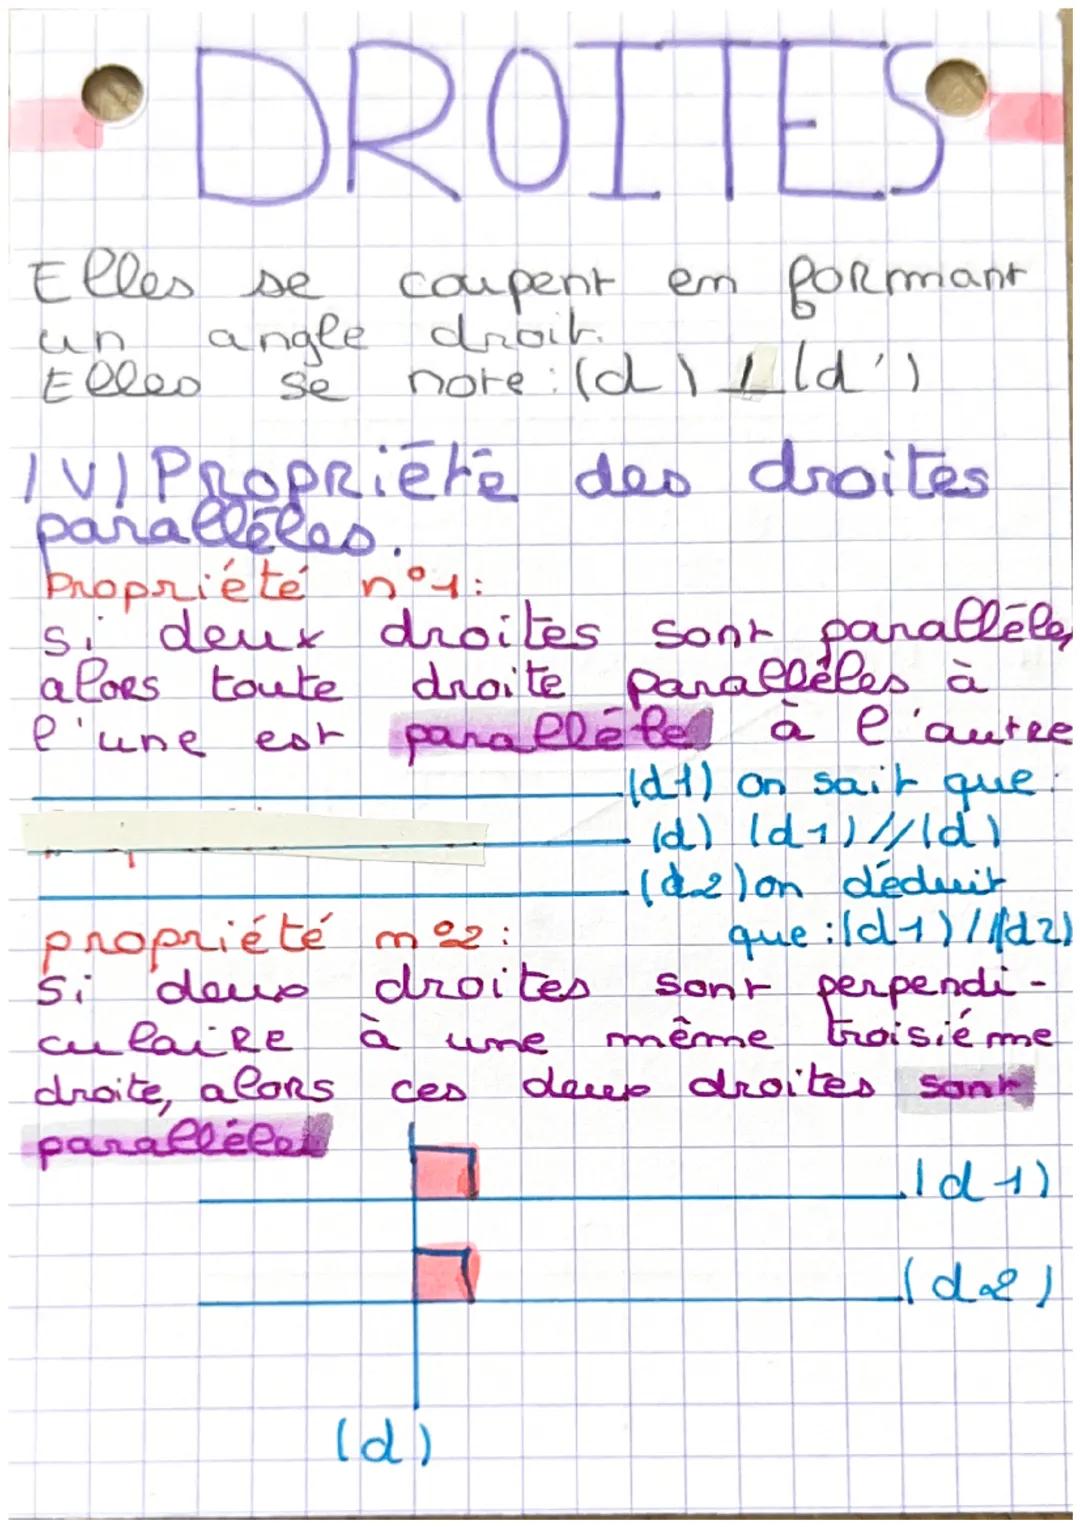 DROITES
Elles se coupent en formant
un angle droit.
Elles se note : (d) ⊥ (d')
IV) Propriété des droites
parallèles.
Propriété n°1 :
si deux droites sont parallèles,
alors toute droite parallèles à
l'une est parallèle à l'autre
(d1) on sait que :
(d) (d1) // (d)
(d2) on déduit
que : (d1) // (d2)
propriété n°2 :
si deux droites sont perpendi-
culaire à une même troisiéme
droite, alors ces deux droites sont
parallèles
(d1)
(d2)
(d)